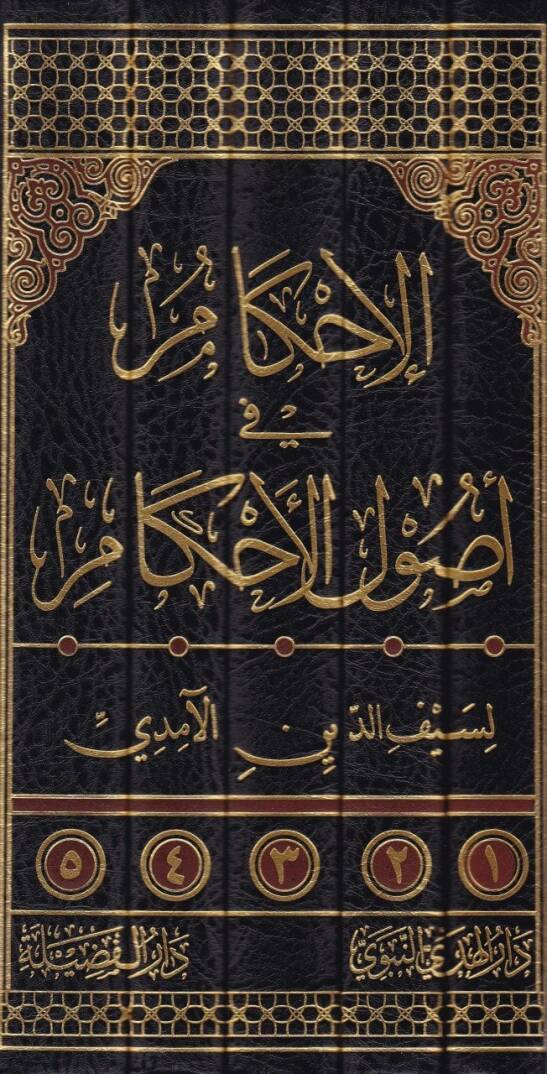 الإِحْكَامُ
فِي
أُصُولِ الأَحْكَامِ
لِسَيْفِ الدِّينِ الآمِدِيِّ
١ ٢ ٣ ٤ ٥
دَارُ الهَدْيِ النَّبَوِيِّ دَارُ الفَضِيلَةِ